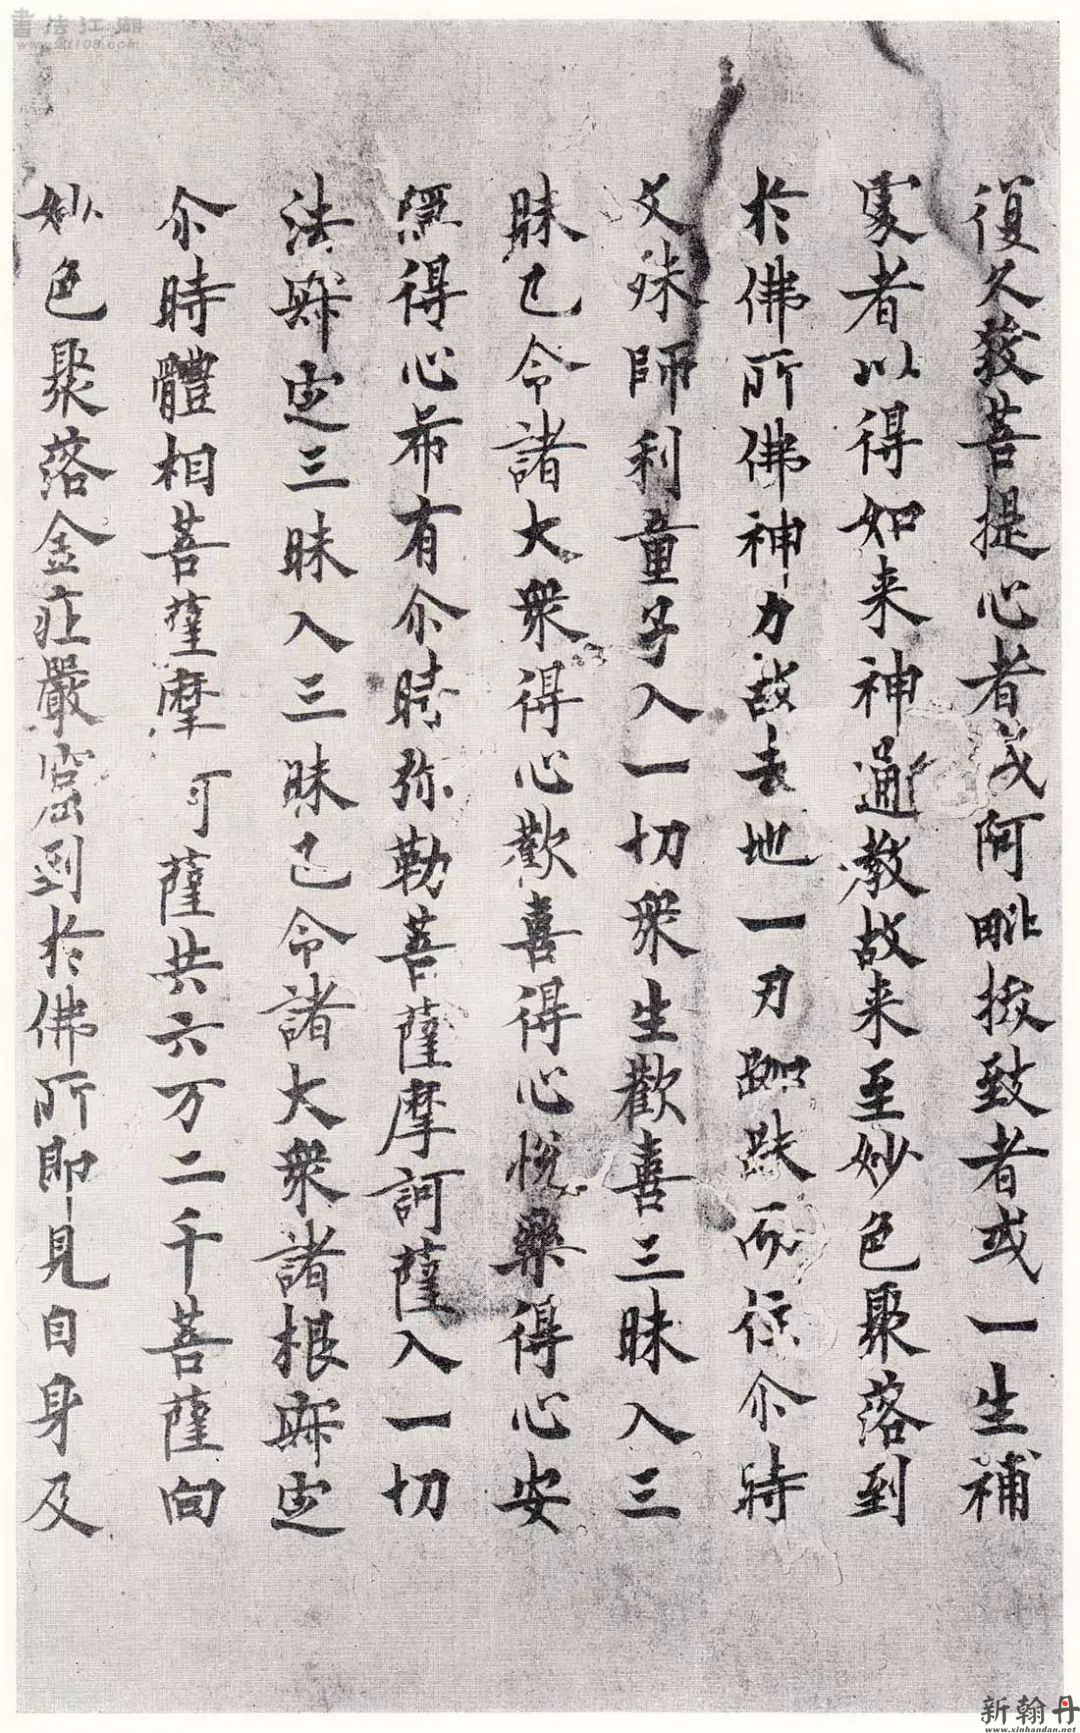 復久發菩提心者或阿毗拔致者或一生補
處者以得如来神通教故来至妙色聚落到
於佛所佛神力故去地一刃跏趺而住尒時
文殊師利童子入一切衆生歡喜三昧入三
昧已令諸大衆得心歡喜得心悅樂得心安
隱得心希有尒時弥勒菩薩摩訶薩入一切
法寂定三昧入三昧已令諸大衆諸根寂定
尒時體相菩薩摩訶薩共六万二千菩薩向
妙色聚落金庄嚴窟到於佛所即見自身及
書法江湖
新翰丹
www.xinhandan.net